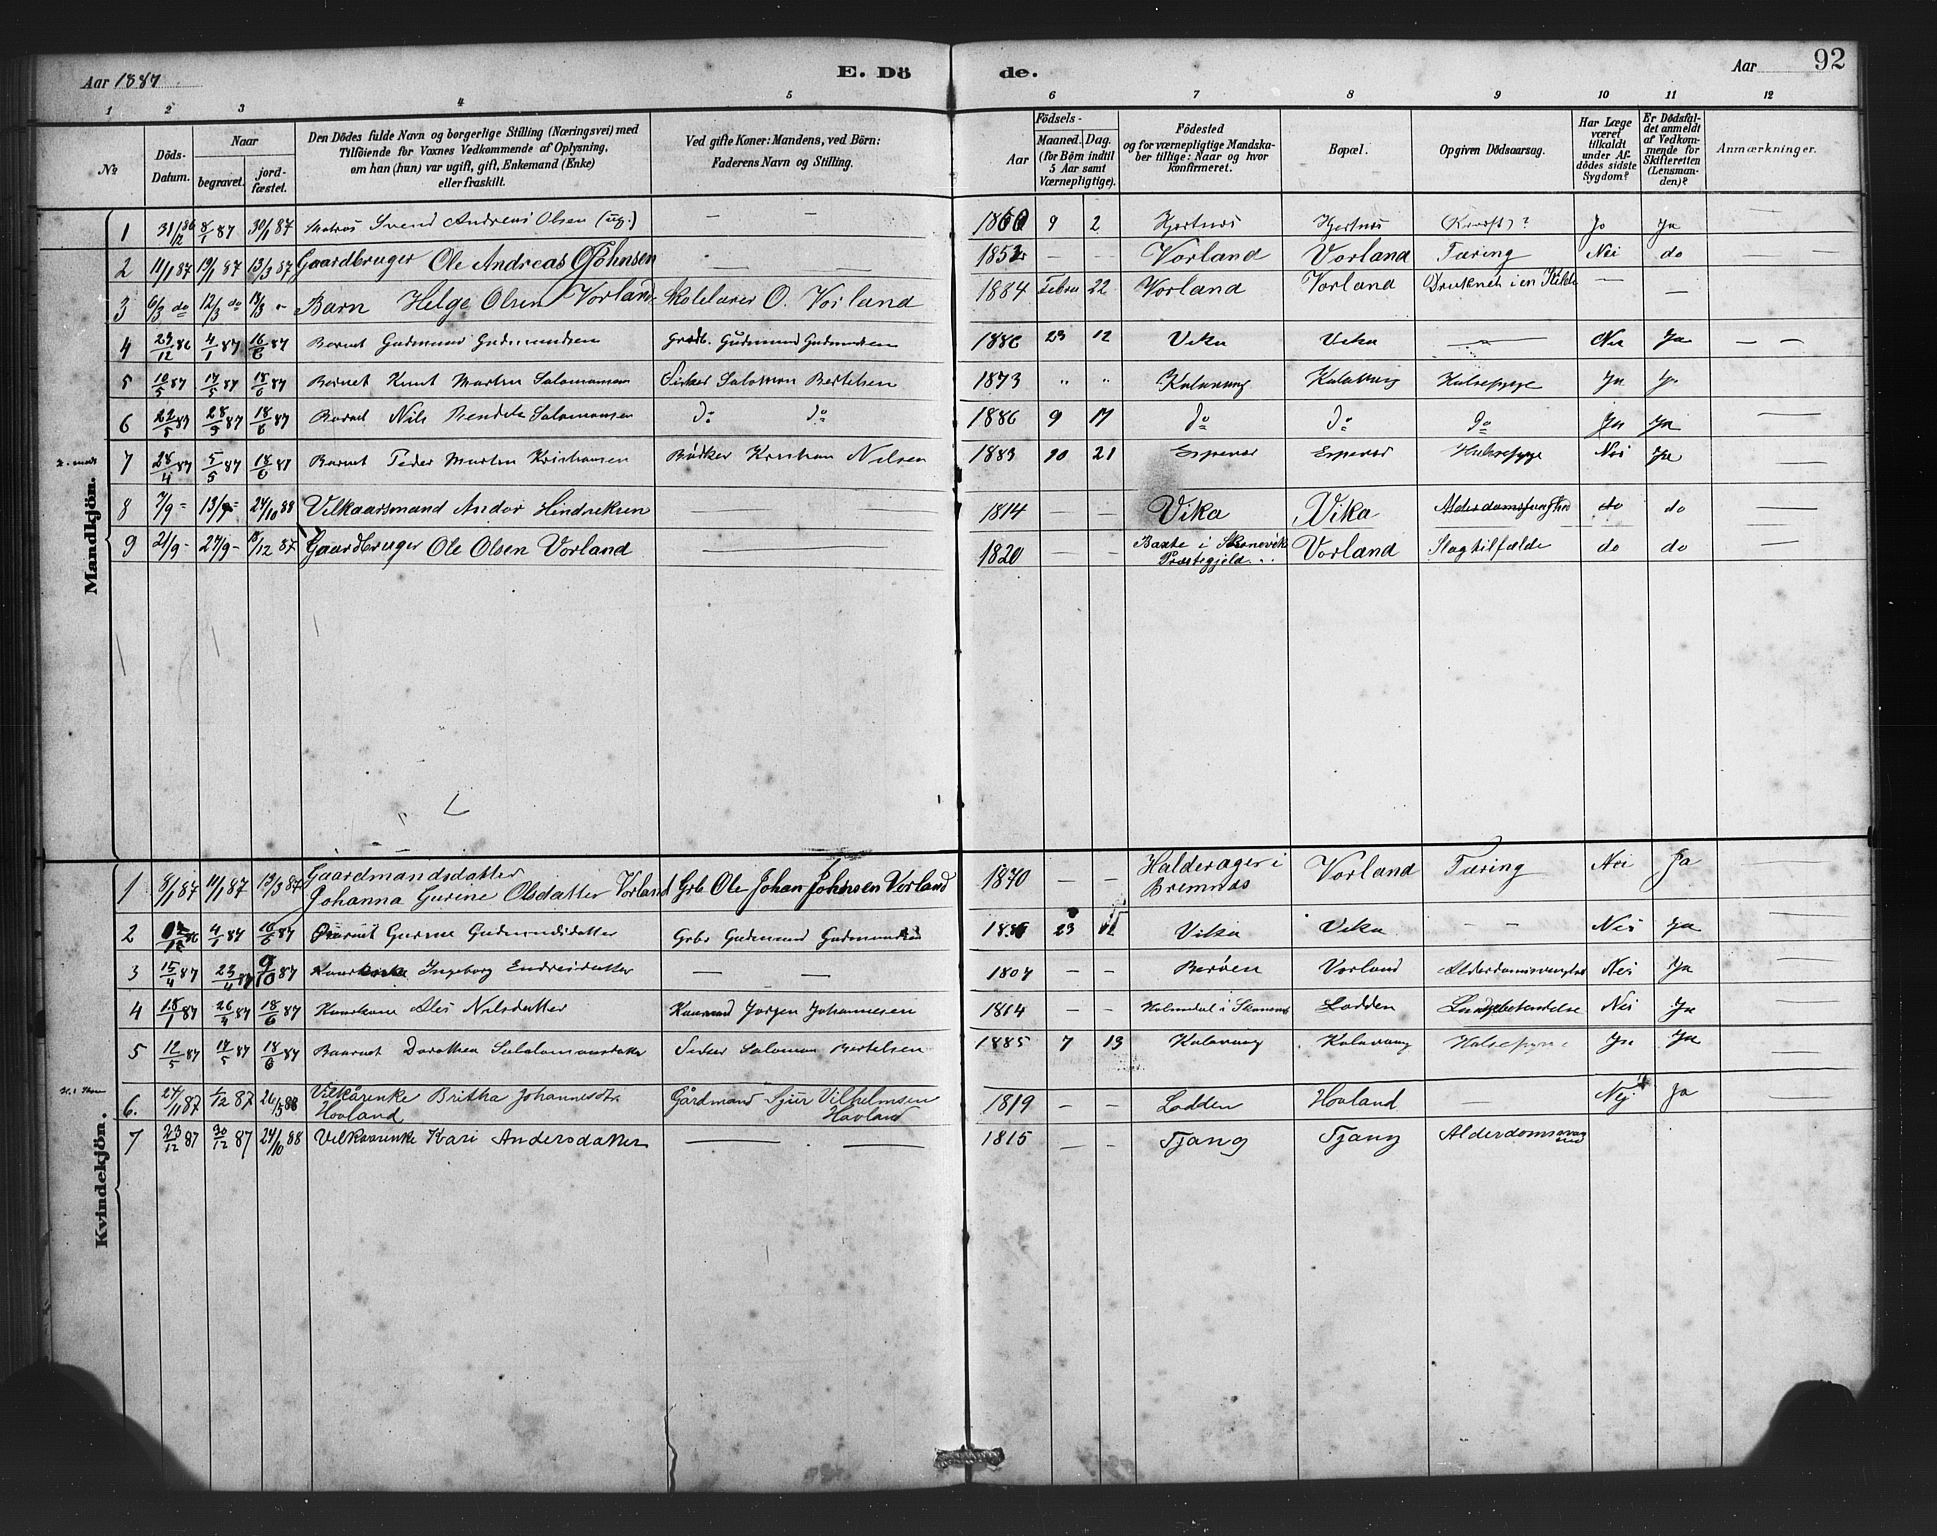 Aar 1887 E. Dö de. Aar 92
1 2 3 4 5 6 7 8 9 10 11 12
No.
Döds-Datum.
Naar
begravet.
jord-fæstet.
Den Dödes fulde Navn og borgerlige Stilling (Næringsvei) med
Tilföiende for Voxnes Vedkommende af Oplysning,
om han (hun) var ugift, gift, Enkemand (Enke)
eller fraskilt.
Ved gifte Koner: Mandens, ved Börn:
Faderens Navn og Stilling.
Födsels-
Aar
Maaned. Dag.
(for Börn indtil
5 Aar samt
Værnepligtige).
Födested
og for værnepligtige Mandska-
ber tillige: Naar og hvor
konfirmeret.
Bopæl.
Opgiven Dödsaarsag.
Har Læge
været
tilkaldt
under Af-
dödes sidste
Sygdom?
Er Dödsfal-
det anmeldt
af Vedkom-
mende for
Skifteretten
(Lensman-
den)?
Anmærkninger.
Mandkjön.
1 31/12 86 8/1 87 30/1 87 Matros Svend Andreas Olsen (ug.) — — 9 2 Ja
2 11/1 87 19/1 87 13/3 87 Gaardbruger Ole Andreas Johnsen — — 1852 — — Vorland Vorland Tæring Nei do
3 6/3 do 12/3 do 13/3 " Barn Helge Olsen Vorland Skolelærer O. Vorland 1884 Febru 22 Vorland Vorland Druknet i en Kilde — —
4 23/12 86 4/1 87 16/6 87 Barnet Gudmund Gudmundsen Grdb. Gudmund Gudmundsen 1886 23 12 Vika Vika — Nei Ja — —
5 10/5 87 17/5 87 18/6 87 Barnet Knut Martin Salomonsen Salomon Bertelsen 1873 " " Kulavaag Kulavaag Halsesyge Ja Ja —
6 22/5 87 28/5 87 18/6 87 Barnet Nils Salomonsen do do 1886 9 17 do do do Ja Ja —
7 28/4 87 5/5 87 18/6 87 Barnet Peder Martin Kristiansen Bödker Kristian Nilsen 1883 10 21 Espevær Espevær Halsesyge Nei Ja —
8 7/9 - 13/9 - 24/10 88 Vilkaarsmand Andor Hindriksen — 1814 — — Vika Vika do do —
9 21/9 - 27/9 - 18/12 87 Gaardbruger Ole Olsen Vorland — 1820 — — Baxte i Skonevik Vorland Slagtilfælde do do —
Præstegjeld
Kvindekjön.
Gaardmandsdatter Halderager i
1 8/1 87 11/1 87 13/3 87 Johanna Gurine Olsdatter Vorland Grb. Ole Johan Johnsen Vorland 1870 — — Bremnæs Vorland Tæring Nei Ja —
2 4/1 87 16/6 87 Gurine Gudmundsdatter Grbr Gudmund Gudmundsen 23 12 Vika Vika — — Nei Ja —
3 15/4 87 23/4 87 9/10 87 Ingeborg Endresdatter — — 1807 — — Beröen Vorland Nei Ja —
4 18/1 87 26/4 87 18/6 87 Kaarkone Nilsdatter Kaarmand Jörgen Johannesen 1814 — — Lodden Lungebetændelse Nei Ja —
5 12/5 87 17/5 87 18/6 87 Barnet Dorothea Salomonsdatter Salomon Bertelsen 1885 7 13 Kulavaag Kulavaag Halsesyge Ja Ja —
6. 24/11 87 1/12 87 26/5 88 Vilkårenke Britha Johannesdtr Gårdmand Sjur Vilhelmsen 1819 — — Lodden Hovland — Nej Ja —
Hovland Hovland
7 23/12 87 30/12 87 24/10 88 Vilkaarenke Kari Andersdatter — — 1815 — — Tjang Tjang Alderdoms